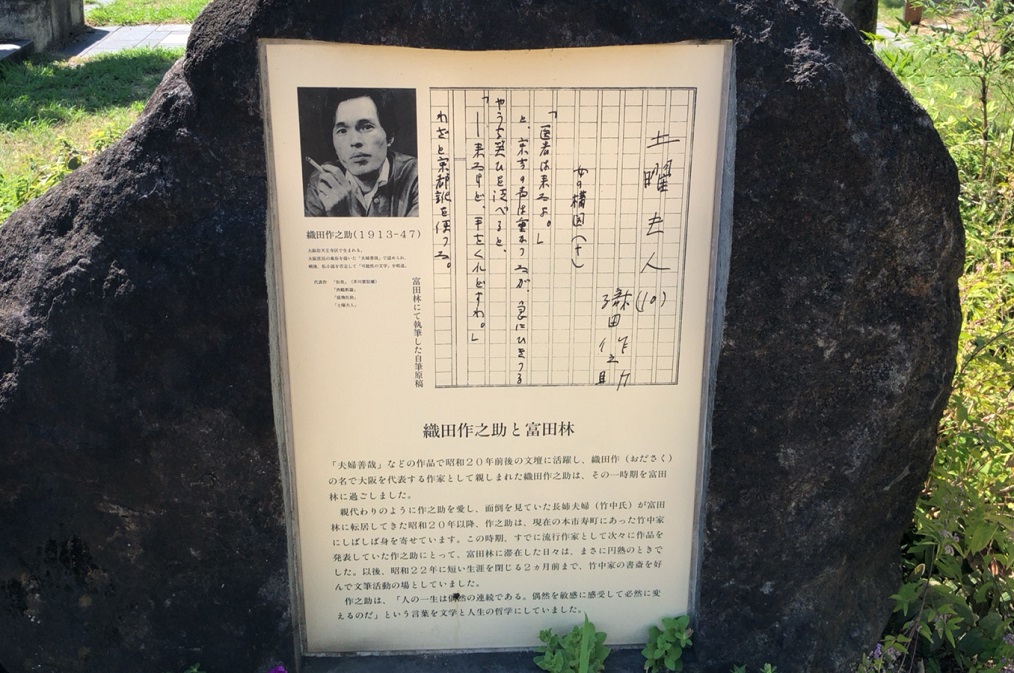 土曜夫人(10)
織田作之助
女の構図(十)
「医者は来るよ。」
と、京吉の声は重かつたが、急にひきつる
やうな笑ひを浮べると、
「――来るけど、手おくれどすわ。」
わざと京都訛を使つた。
織田作之助(1913-47)
富田林にて執筆した自筆原稿
織田作之助と富田林
「夫婦善哉」などの作品で昭和20年前後の文壇に活躍し、織田作(おださく)
の名で大阪を代表する作家として親しまれた織田作之助は、その一時期を富田
林に過ごしました。
親代わりのように作之助を愛し、面倒を見ていた長姉夫婦(竹中氏)が富田
林に転居してきた昭和20年以降、作之助は、現在の本市寿町にあった竹中家
にしばしば身を寄せています。この時期、すでに流行作家として次々に作品を
発表していた作之助にとって、富田林に滞在した日々は、まさに円熟のときで
した。以後、昭和22年に短い生涯を閉じる2ヵ月前まで、竹中家の書斎を好
んで文筆活動の場としていました。
作之助は、「人の一生は偶然の連続である。偶然を敏感に感受して必然に変
えるのだ」という言葉を文学と人生の哲学にしていました。